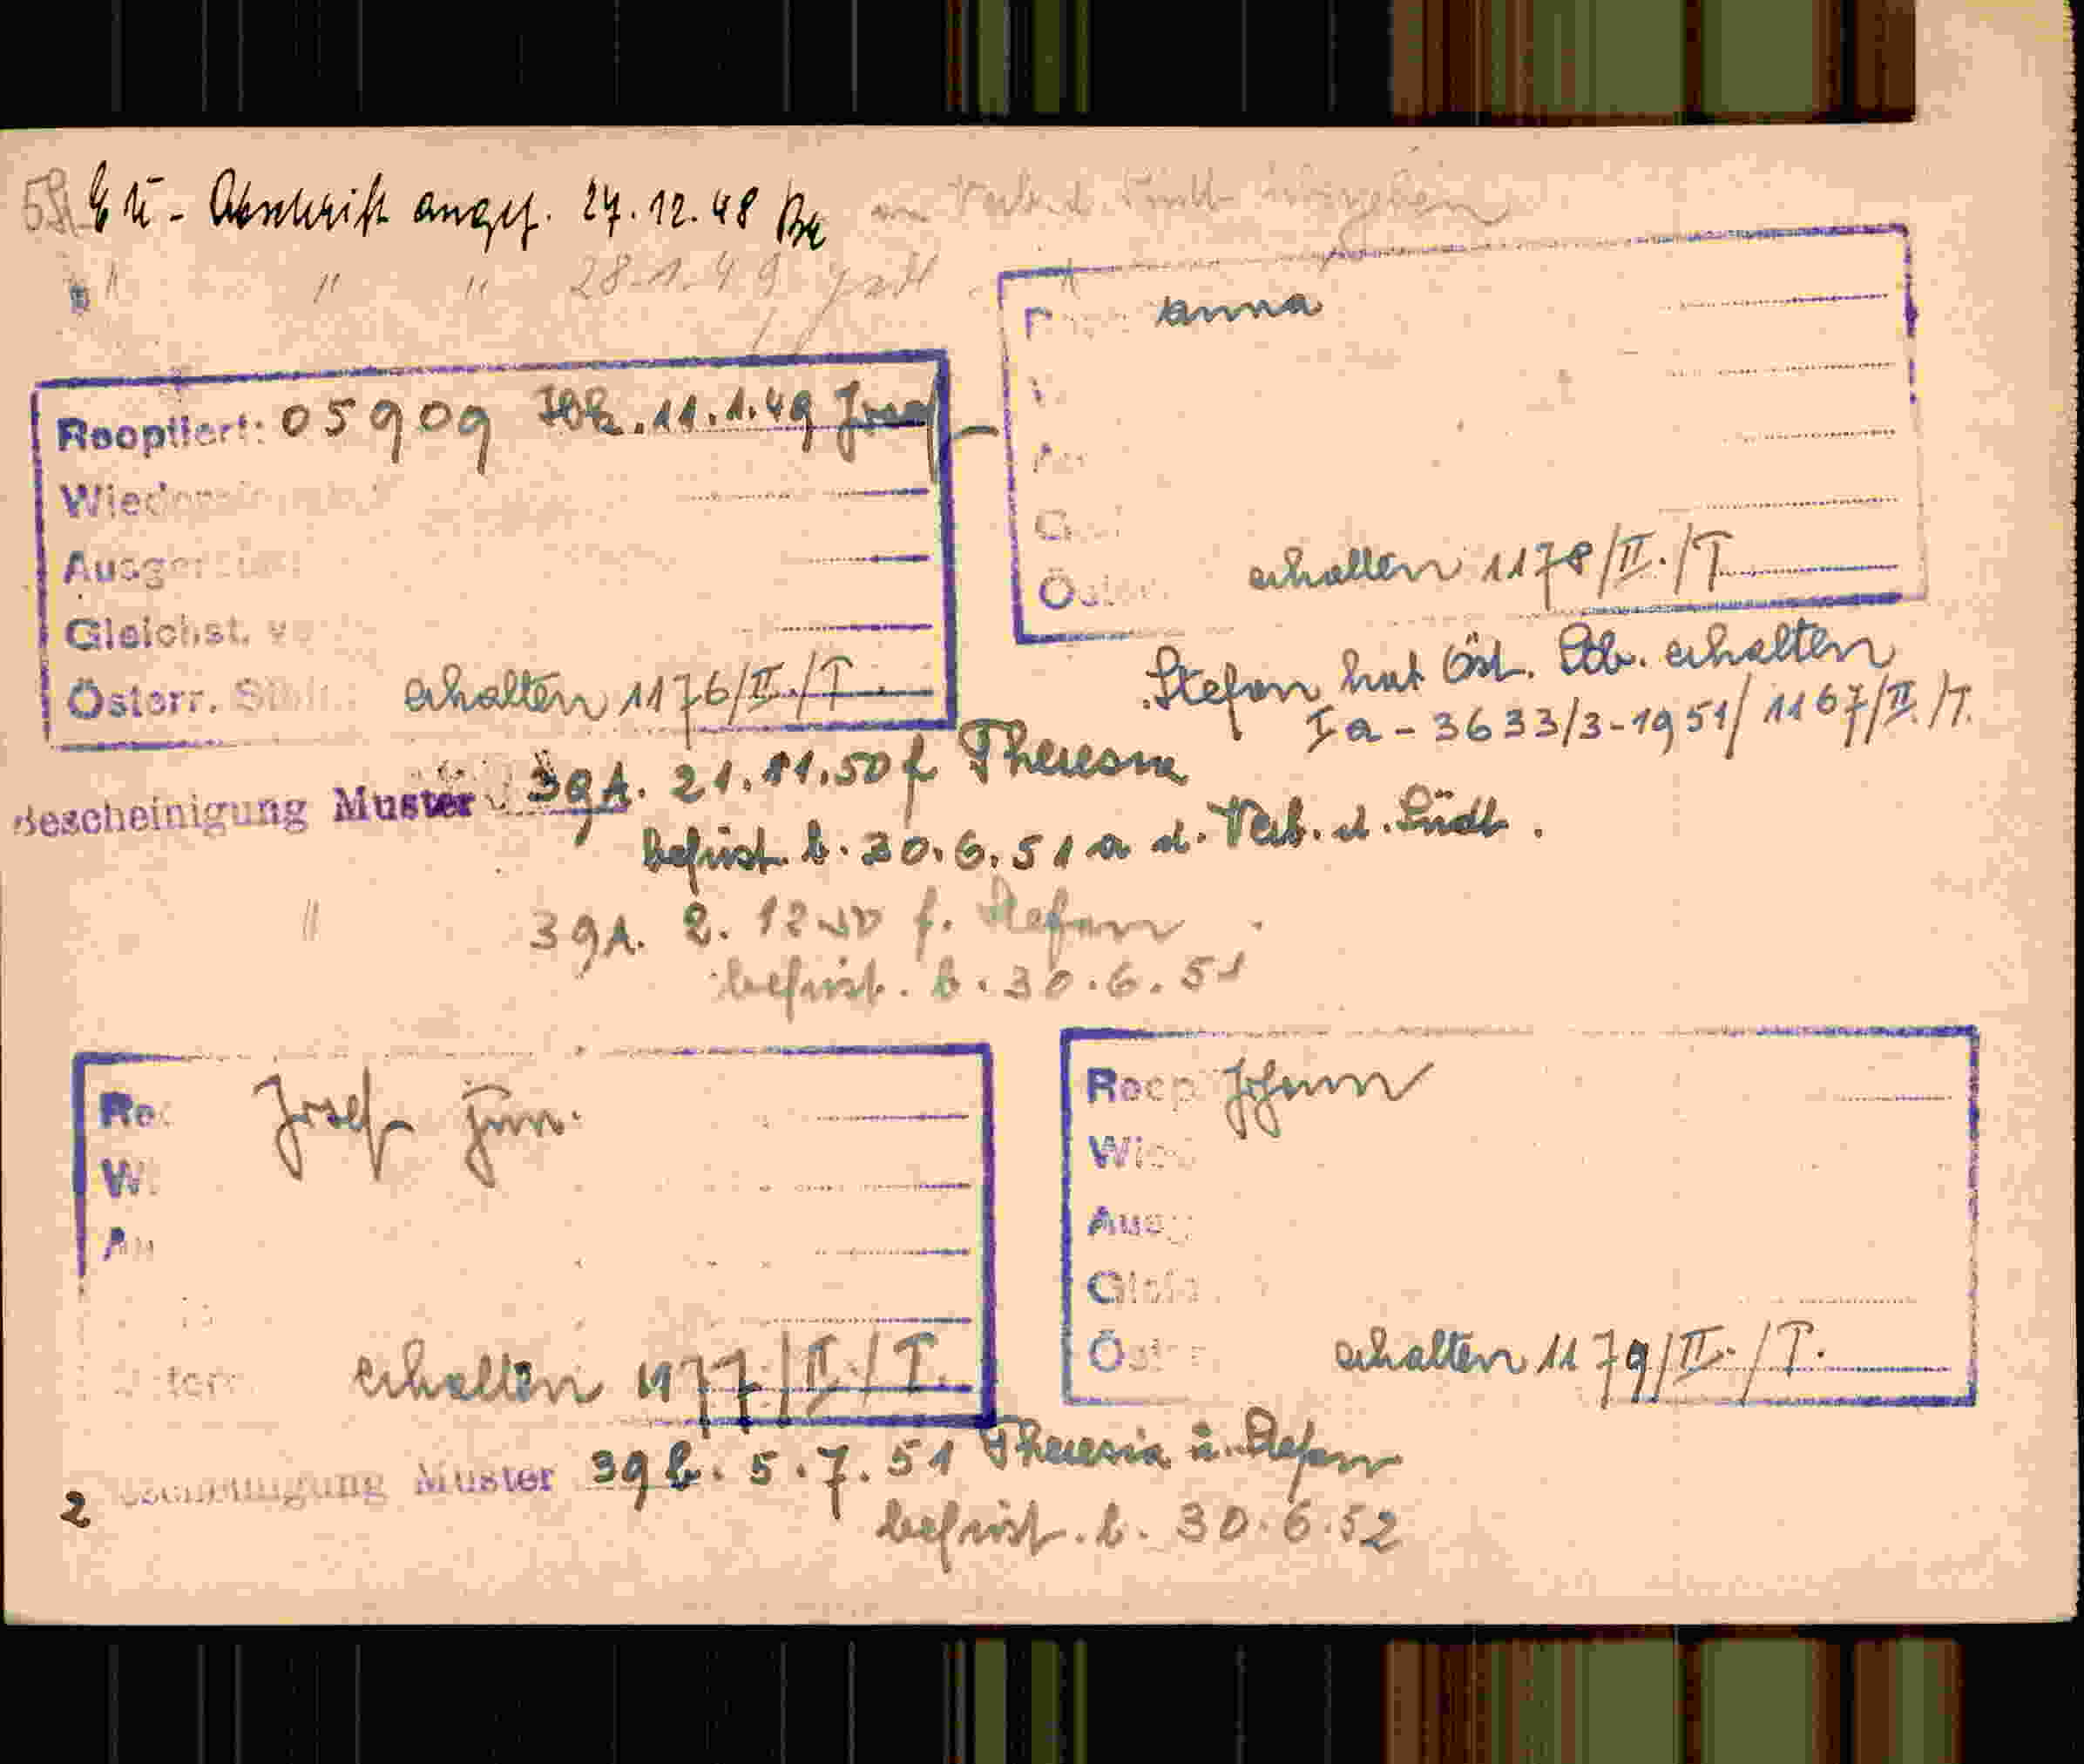 EU - Abschrift angef. 27.12.48
" " " 28.1.49
Reoptiert: 05909 Ibk. 11.1.49 Josef
Ausger
Gleichst. v
Österr. erhalten 1176/II./T.
Anna
erhalten 1178/II./T
Stefan hat Öst. Stb. erhalten
Ia - 3633/3-1951/1167/II./T.
Bescheinigung Muster 39A. 21.11.50 f Theresia
befrist. b. 30.6.51 a d. Verb. d. Südt.
" 39A. 2. 12.50 f. Stefan
befrist. b. 30.6.51
Josef jun.
erhalten 1177/II./T.
Johann
erhalten 1179/II./T.
2 Muster 39 b. 5.7.51 Theresia u. Stefan
befrist. b. 30.6.52